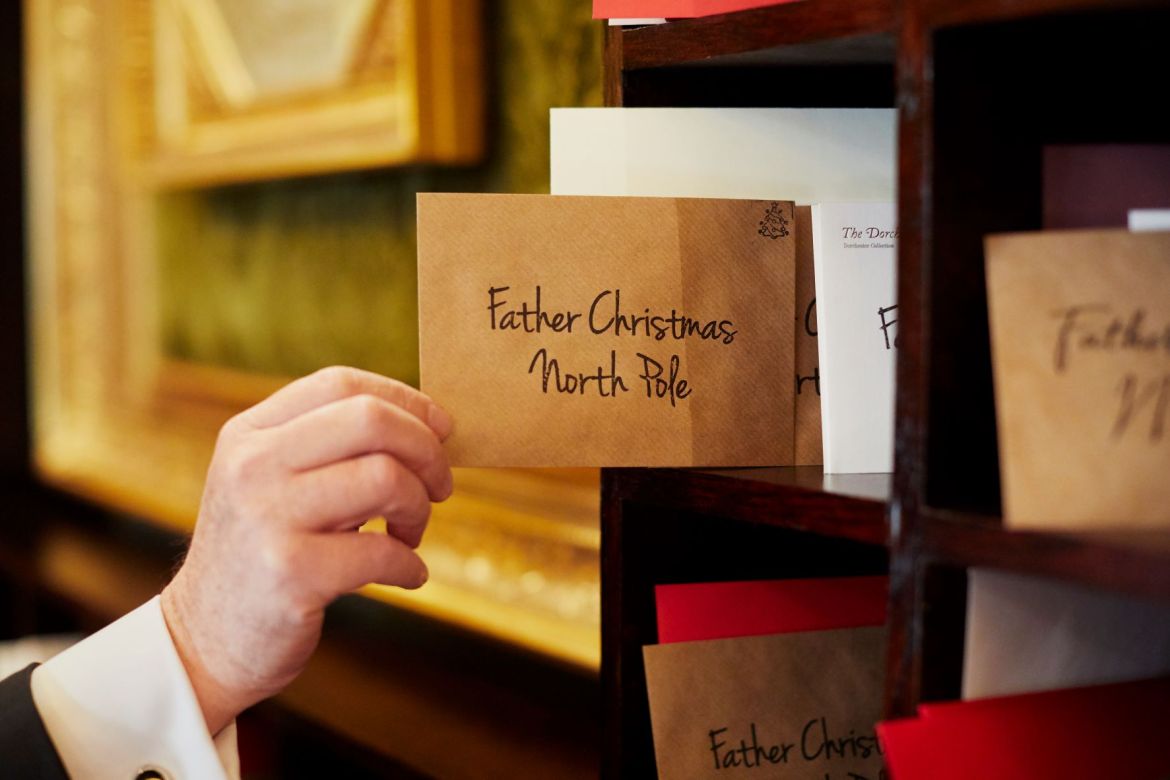 Father Christmas
North Pole
The Dorch
Dorchester Collection
F
rt
Father
N
Father Christ